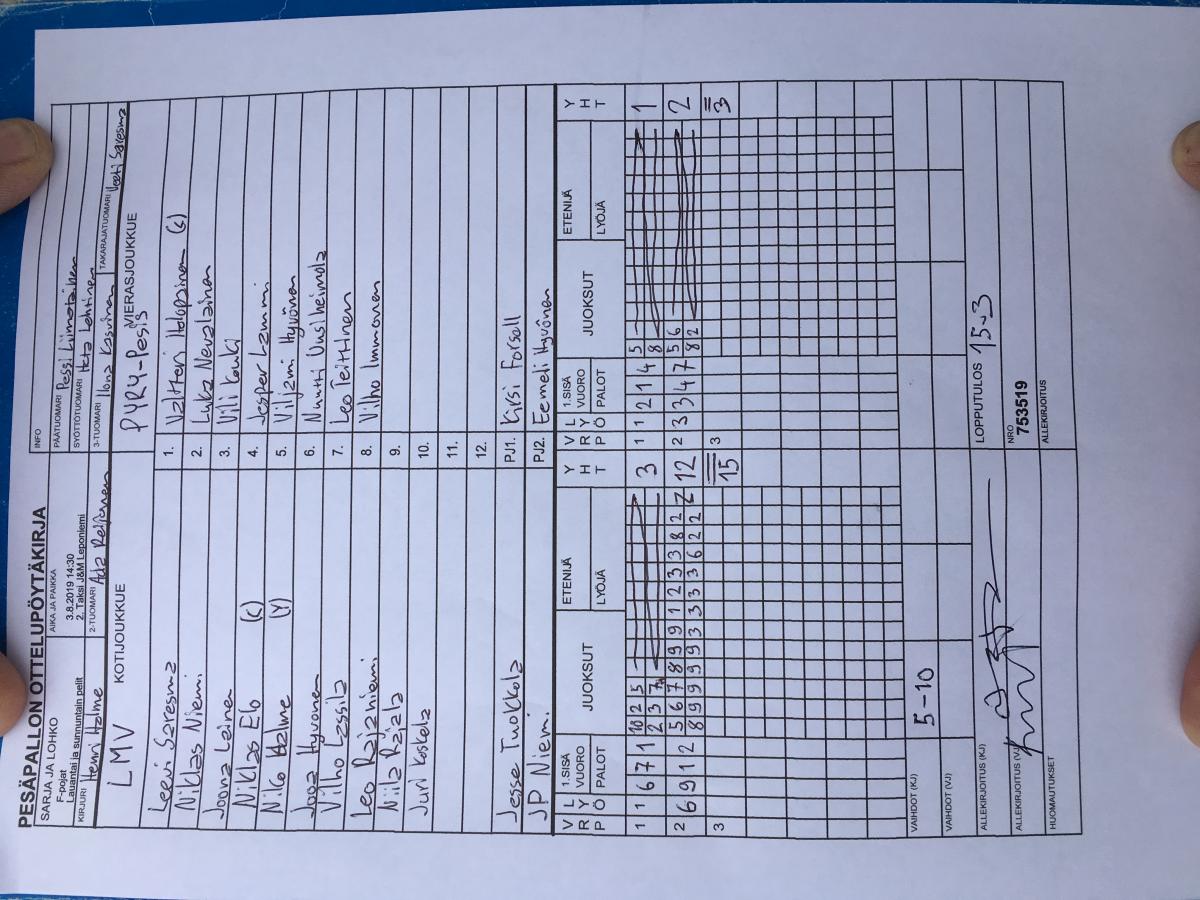 PESÄPALLON OTTELUPÖYTÄKIRJA
SARJA JA LOHKO
F-pojat
Lauantai ja sunnuntain pelit
AIKA JA PAIKKA
3.8.2019 14:30
2. Taksi J&M Leponiemi
INFO
PÄÄTUOMARI Pessi Liimatainen
SYÖTTÖTUOMARI Heta Lehtinen
KIRJURI Henri Halme
2-TUOMARI Ada
3-TUOMARI Ilona Kasvinen
TAKARAJATUOMARI Veeti Saresma
LMV KOTIJOUKKUE
PYRY-Pesis VIERASJOUKKUE
Leevi Saresma 1. Valtteri Holopainen (L)
Niklas Niemi 2. Luka Nevalainen
Joona Leinea 3. Vili Kauki
Niklas Elo (L) 4. Jesper Lammi
Niko Halme (Y) 5. Viljami Hyvönen
Jooa Hyvonen 6. Nuutti Uusiheimala
Vilho Lassila 7. Leo Teittinen
Leo Rajaniemi 8. Vilho Immonen
Niila Rajala 9.
Juri Koskela 10.
11.
12.
Jesse Tuokkola PJ1. Kirsi Forsell
JP Niemi PJ2. Eemeli Hyvönen
VRP LYÖ 1.SISÄ VUORO PALOT JUOKSUT ETENIJÄ LYÖJÄ YHT VRP LYÖ 1.SISÄ VUORO PALOT JUOKSUT ETENIJÄ LYÖJÄ YHT
1 1 6 7 1 10 2 5 3 1 1 2 1 4 5 1
2 3 7 8
2 6 9 1 2 5 6 7 8 9 9 1 2 3 3 8 2 12 2 3 3 4 7 5 6 2
8 9 9 9 9 3 3 3 3 6 2 2 8 2
3 15 3 3
VAIHDOT (KJ) 5-10
VAIHDOT (VJ)
ALLEKIRJOITUS (KJ)
LOPPUTULOS 15-3
ALLEKIRJOITUS (VJ)
NRO
753519
HUOMAUTUKSET
ALLEKIRJOITUS